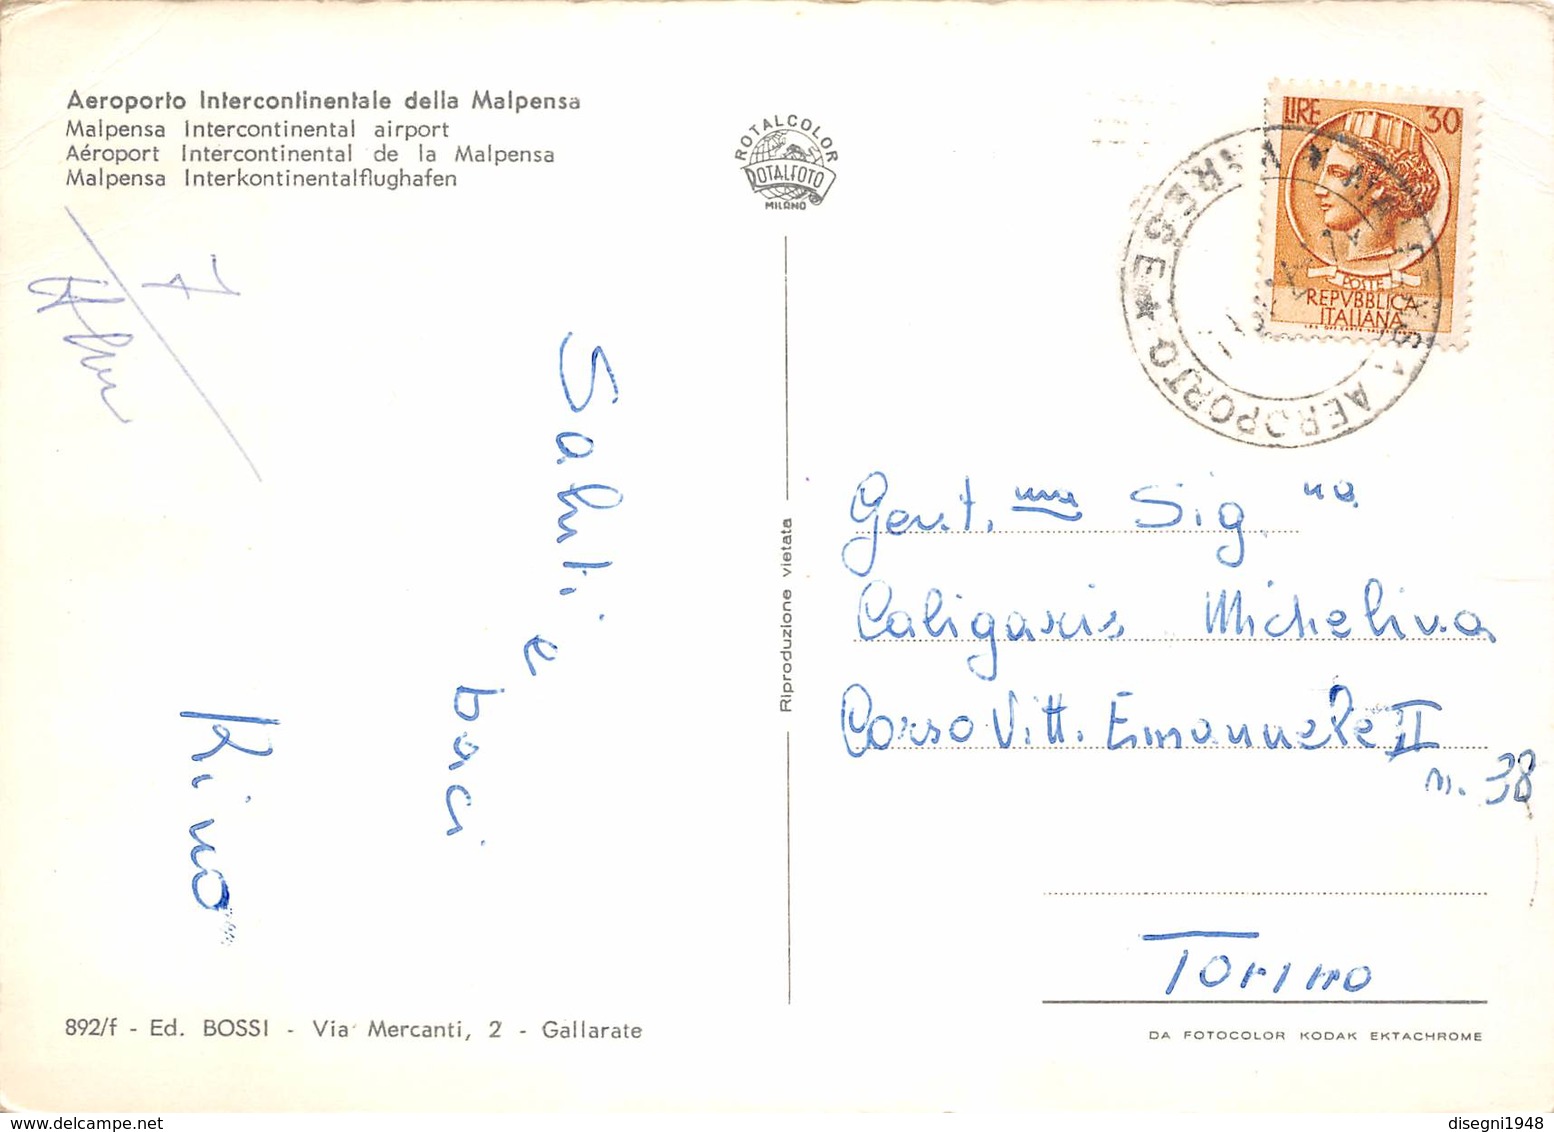 Aeroporto Intercontinentale della Malpensa
Malpensa Intercontinental airport
Aéroport Intercontinental de la Malpensa
Malpensa Interkontinentalflughafen
ROTALCOLOR
ROTALFOTO
MILANO
LIRE 30
POSTE
REPVBBLICA
ITALIANA
AEROPORTO
VARESE
Saluti e
baci
Rino
Riproduzione vietata
Gent.ma Sig.na
Caligaris Michelina
Corso Vitt. Emanuele II
n. 38
Torino
892/f - Ed. BOSSI - Via Mercanti, 2 - Gallarate
DA FOTOCOLOR KODAK EKTACHROME
disegni1948